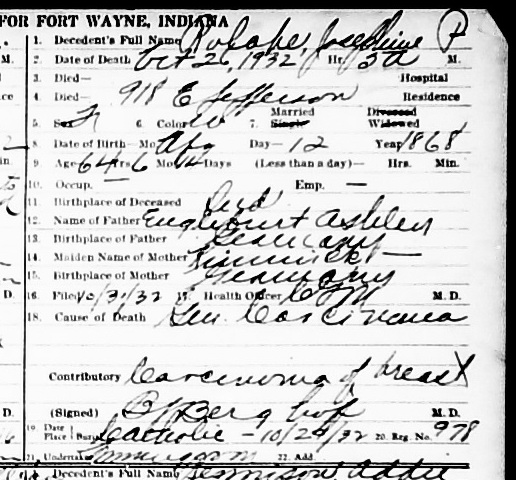 FOR FORT WAYNE, INDIANA
1. Decedent's Full Name Josephine P
2. Date of Death Oct 26, 1932 Hr. 5 a M.
3. Died— Hospital
4. Died— 918 E Jefferson Residence
5. Sex F 6. Color W 7. Married Single Divorced Widowed
8. Date of Birth—Mo. Apr Day—12 Year 1868
9. Age 64 Yrs. 6 Mo. 14 Days (Less than a day)— Hrs. Min.
10. Occup. — Emp. —
11. Birthplace of Deceased Ind
12. Name of Father Englebert
13. Birthplace of Father Germany
14. Maiden Name of Mother —
15. Birthplace of Mother Germany
16. Filed 10/31/32 17. Health Officer M. D.
18. Cause of Death Gen Carcinoma
Contributory Carcinoma of breast
(Signed) Berghof M. D.
19. Date Place Burial Catholic — 10/29/32 20. Reg. No. 978
21. Undertaker 22. Add
Decedent's Full Name Addie